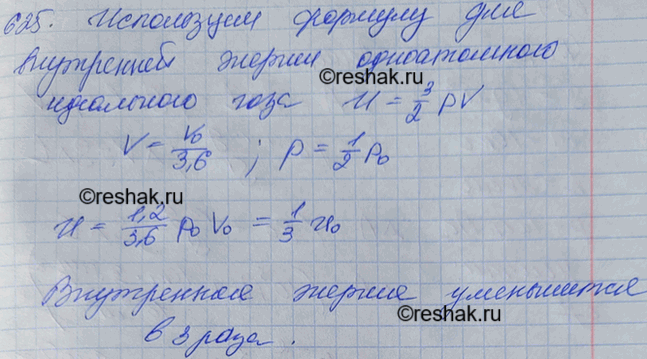 625. Используем формулу для
внутренней энергии одноатомного
©reshak.ru
идеального газа U = 3/2 pV
V = V₀/3,6 ; p = 1/2 p₀
©reshak.ru
U = 1,2/3,6 p₀ V₀ = 1/3 U₀
Внутренняя энергия уменьшится
©reshak.ru
в 3 раза.